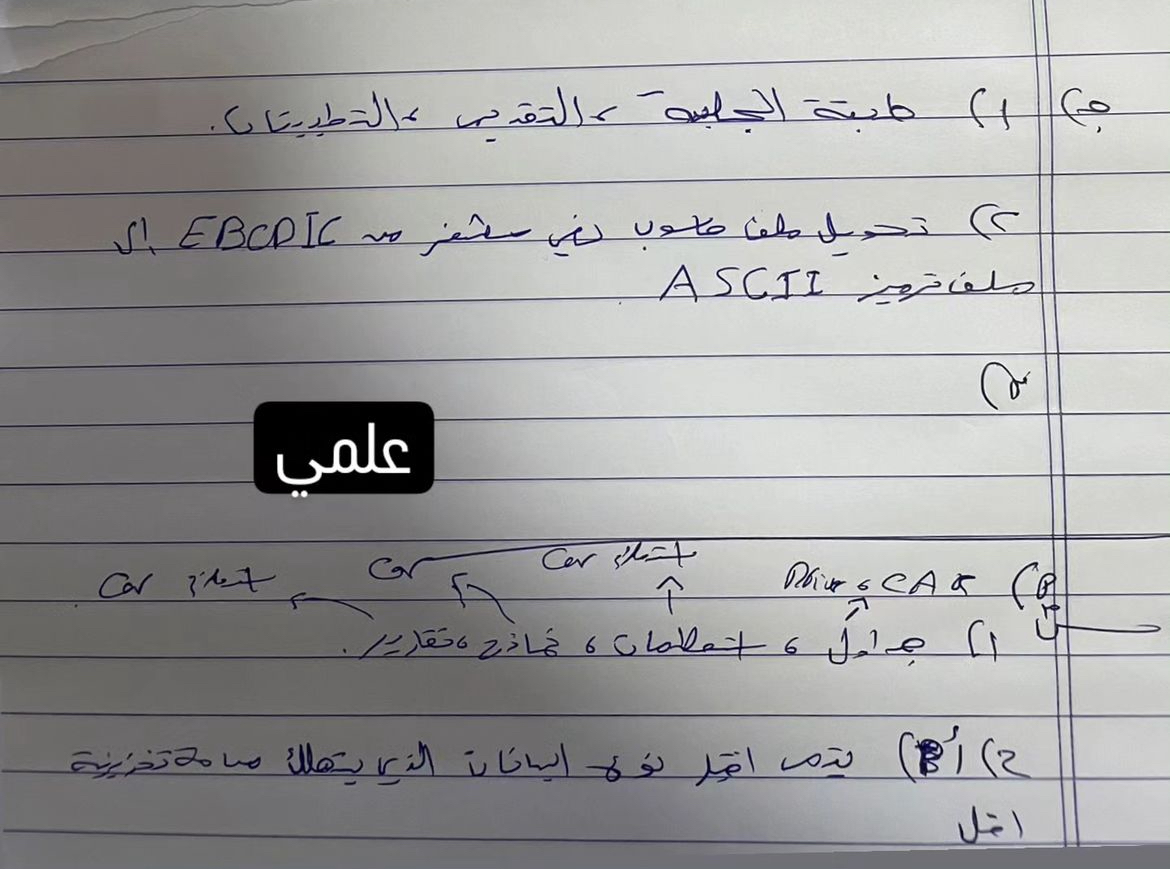 ج) ١) طبقة الجلسة، والتقديم، والتطبيقات.
٢) تحويل ملف حاسوب نصي مشفر من EBCDIC إلى
ملف ترميز ASCII
علمي
استعلام Car Car استعلام Car
١) جداول، استعلامات، نماذج، تقارير.
2) أ) يتم اختيار نوع البيانات الذي يستهلك مساحة تخزينية
اقل